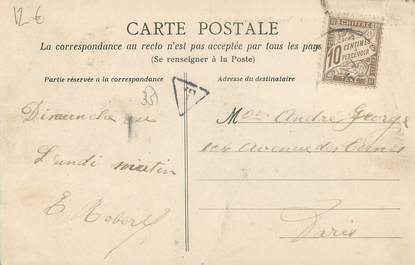 12-€
CARTE POSTALE
La correspondance au recto n'est pas acceptée par tous les pays
(Se renseigner à la Poste)
Partie réservée à la correspondance
Adresse du destinataire
CHIFFRE
10 CENTIMES
À PERCEVOIR
TAXE
T
Dimanche ou
Lundi matin
E. Robert
Mon André George
104 Avenue des
Paris